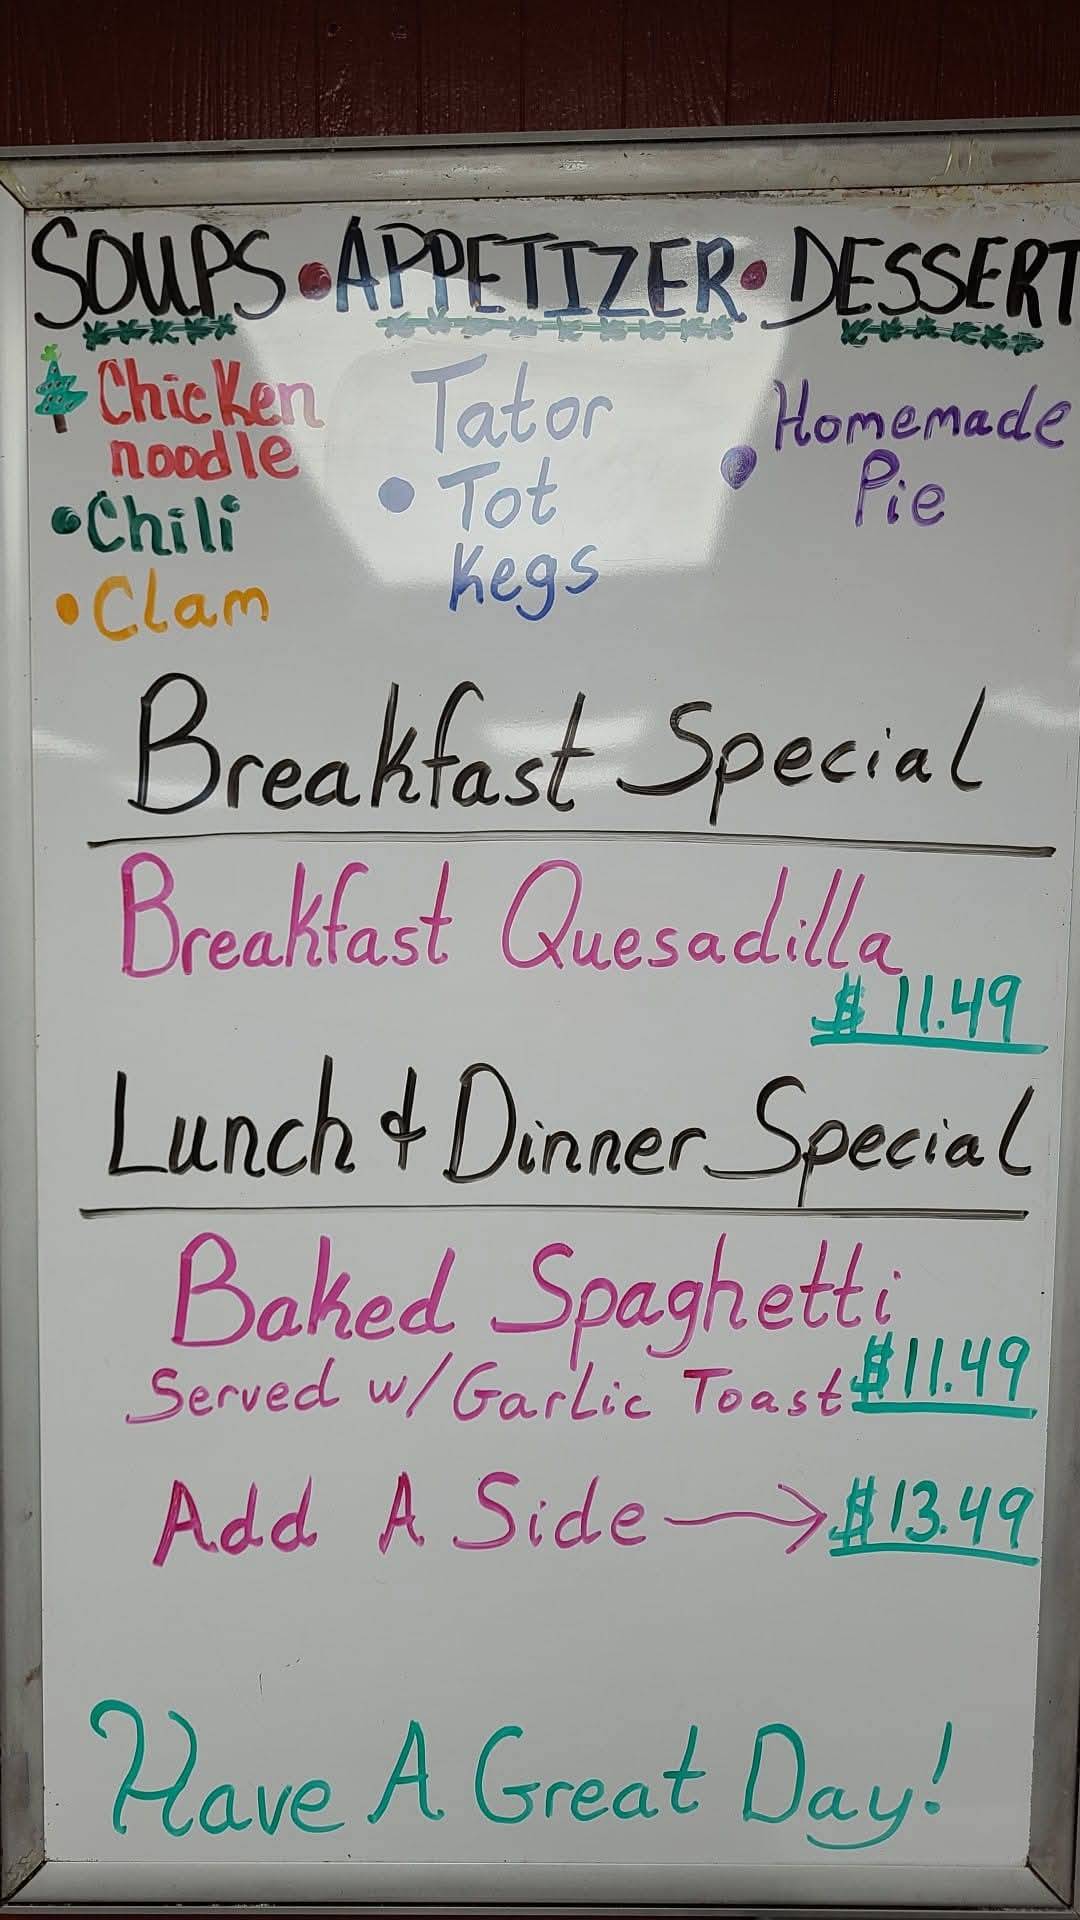 SOUPS • APPETIZER • DESSERT
Chicken
noodle
• Chili
• Clam
Tator
• Tot
Kegs
• Homemade
Pie
Breakfast Special
Breakfast Quesadilla
$11.49
Lunch & Dinner Special
Baked Spaghetti
Served w/ Garlic Toast $11.49
Add A Side → $13.49
Have A Great Day!